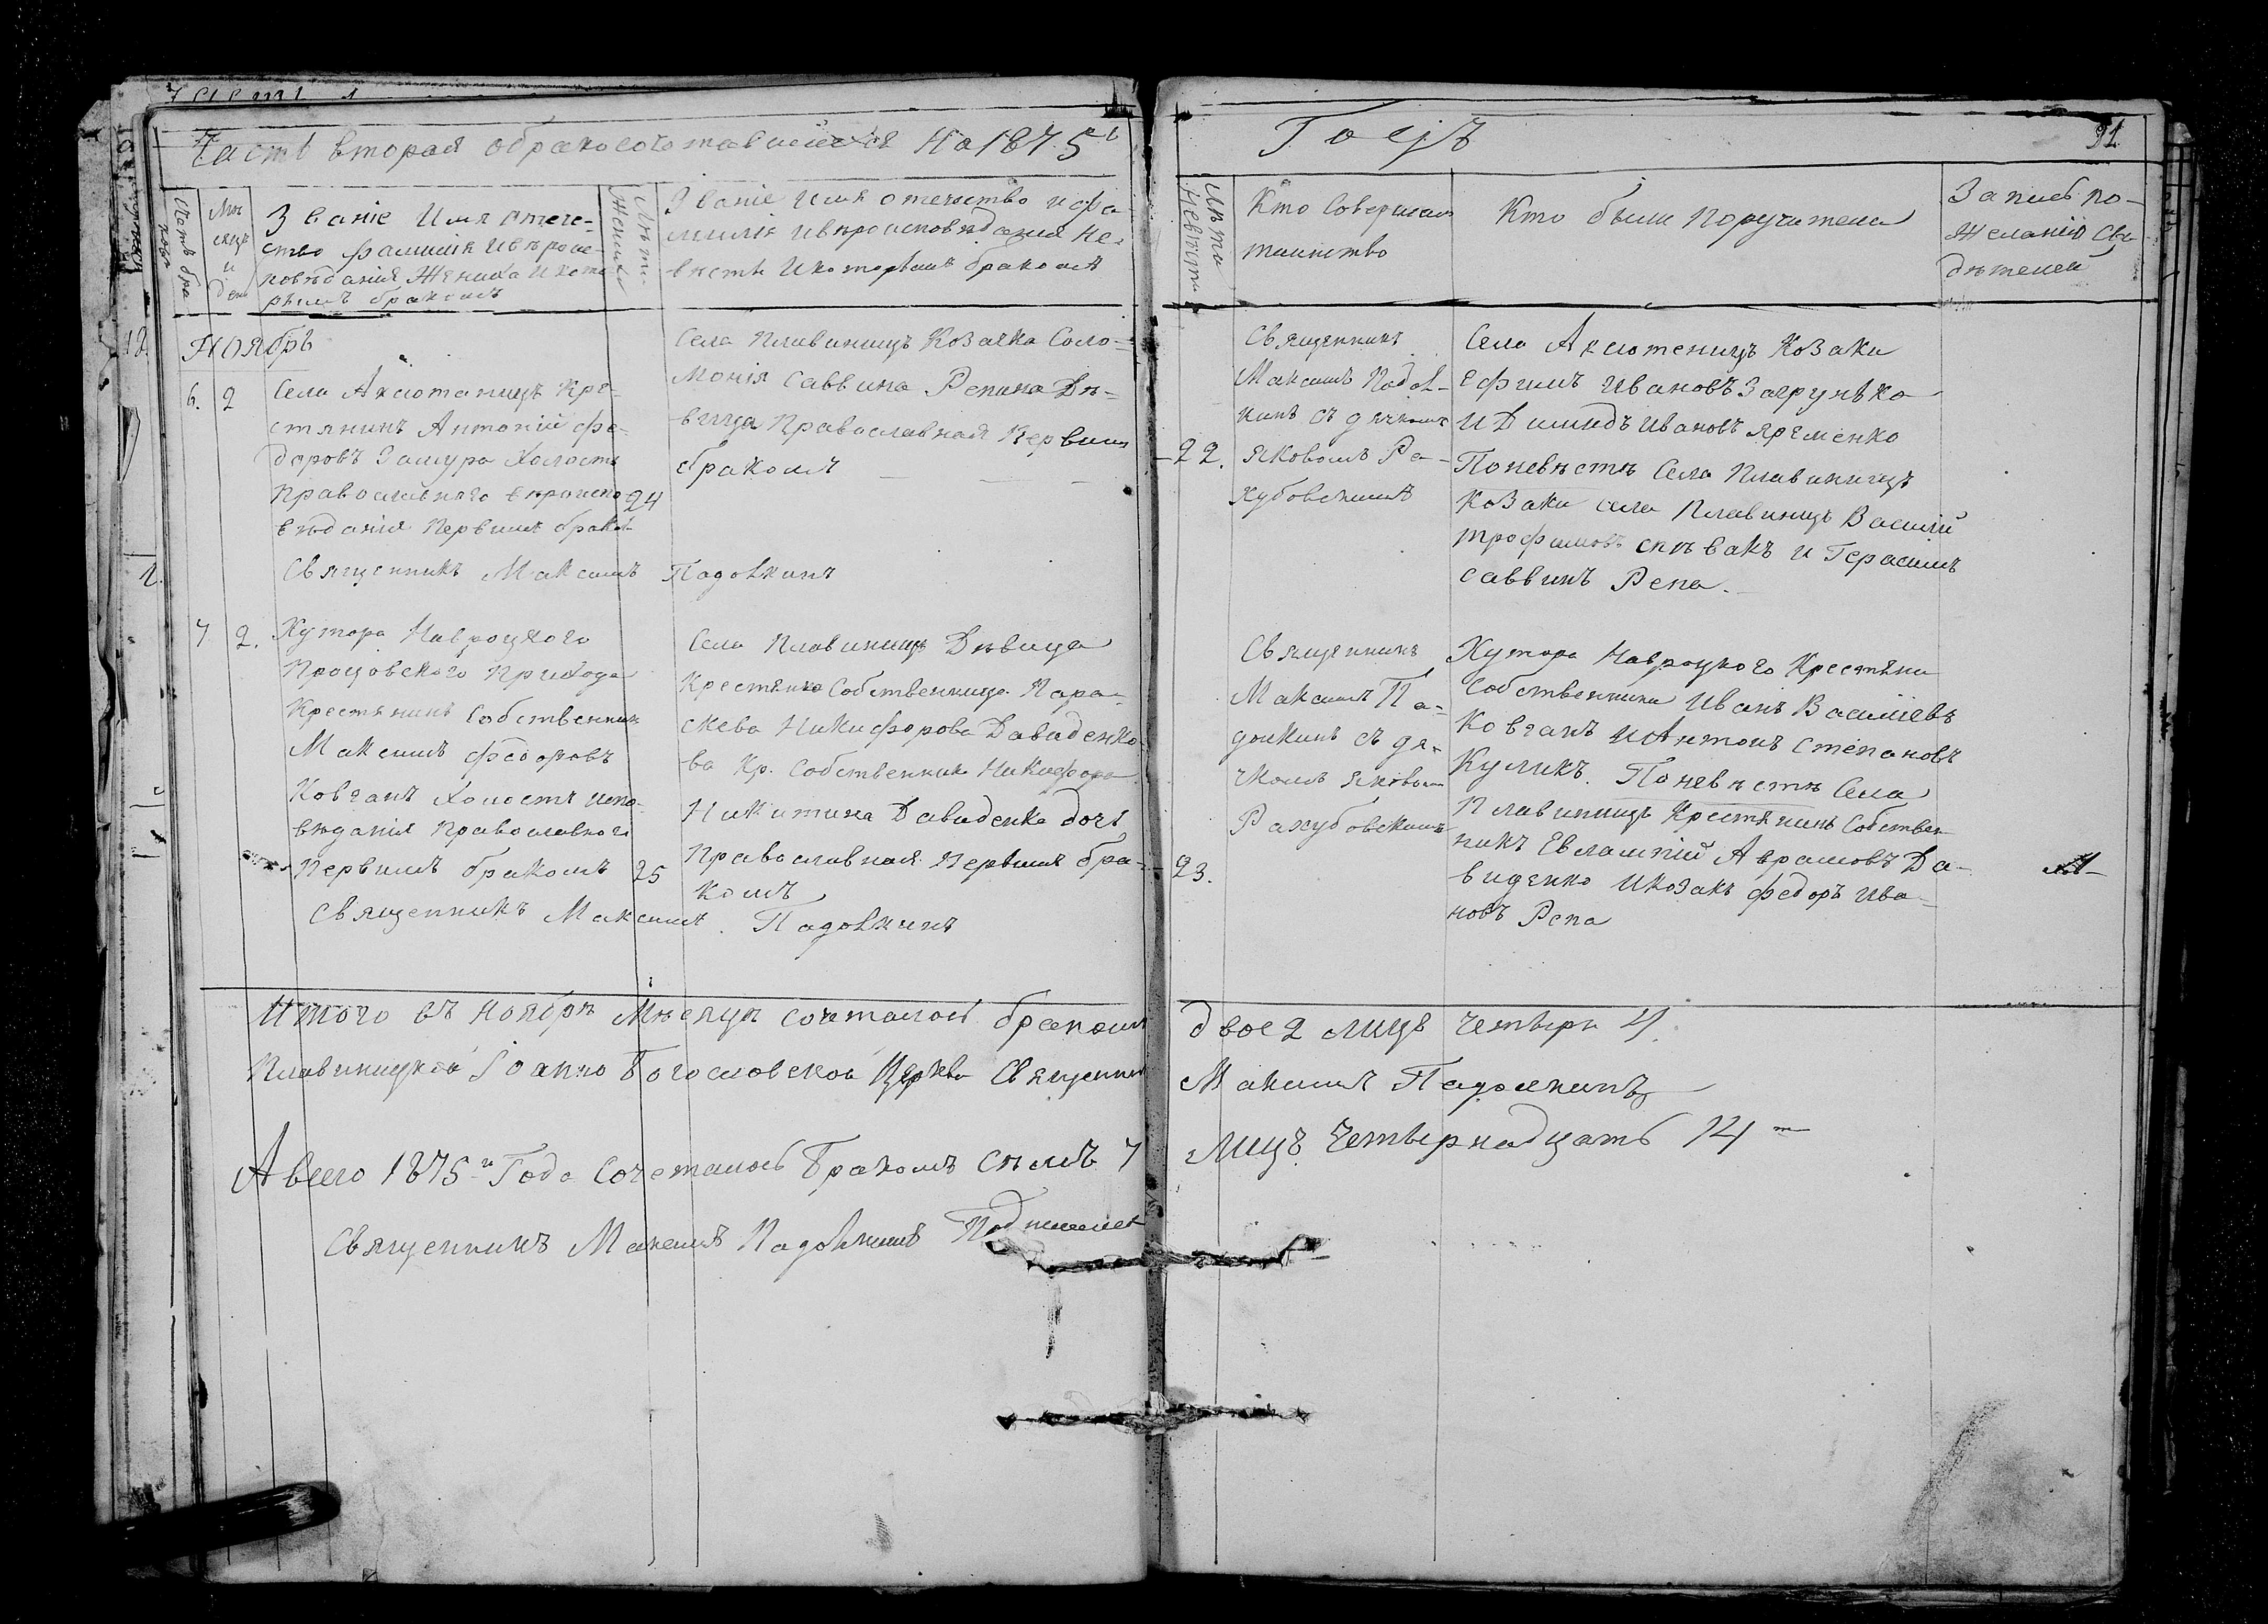 Часть вторая о бракосочетавшихся На 1875
Годъ
91
Счетъ бра
ковъ
Мѣ
сяцъ
и
день
Званіе Имя отече-
ство фамилія и вѣроис-
повѣданія Жениха и кото
рымъ бракомъ
Лѣта
Жениха
Званіе Имя отечество и фа
милія и вѣроисповѣданія не-
вѣсты и которымъ бракомъ
Лѣта
Невѣсты
Кто Совершалъ
таинство
Кто были Поручители
Запись по-
желанію Сви
дѣтелей
Ноябрь
6. 2
Села Аксютинцъ Кре-
стянинъ Антоній Фе-
доровъ Замура Холостъ
Православного вѣроиспо
вѣданія Первимъ брако
24
Села Плавинищъ Козачка Соло-
монія Саввина Репина Дѣ-
вица Православная Первим
бракомъ
22.
Священникъ
Максимъ Подол-
кинъ съ дячкомъ
Яковомъ Ра-
хубовскимъ
Села Аксютенцъ Козаки
Ефимъ Ивановъ Загрунѣко
и Димидъ Ивановъ Яременко
По невѣстѣ Села Плавинищъ
Козаки села Плавинищъ Василій
трофимовъ спѣвакъ и Герасимъ
Саввинъ Репа.
Священникъ Максимъ Падолкинъ
7 2.
Хутора Навроцкого
Процовского Прихода
Крестянинъ Собственник
Максимъ Федоровъ
Ковганъ Холостъ испо-
вѣданія Православного
Первимъ бракомъ
25
Села Плавинищъ Дѣвица
Крестянка Собственница Пара-
скева Никифорова Давиденко-
ва Кр. Собственника Никифора
Никитина Давиденка дочь
Православная Первимъ бра-
комъ
23.
Священникъ
Максимъ Па-
долкинъ съ дя-
чкомъ Яковом
Рахубовскимъ
Хутора Навроцкого Крестяни
Собственники Иванъ Василіевъ
Ковганъ и Антонъ Степановъ
Куликъ. По невѣстѣ Села
Плавинищъ Крестянинъ Собствен
никъ Евлампій Аврамовъ Да-
виденко и козакъ Федоръ Ива-
новъ Репа
Священникъ Максимъ Падолкинъ
Итого въ Ноябрѣ Мѣсяцѣ сочеталось бракомъ двое 2 лицъ четыри 4.
Плавиницкой Іоанно Богословской Церкви Священник Максимъ Падолкинъ
А всего 1875 Года Сочеталось Бракомъ Сѣмъ 7 лицъ Четырнадцать 14
Священникъ Максимъ Падолкинъ